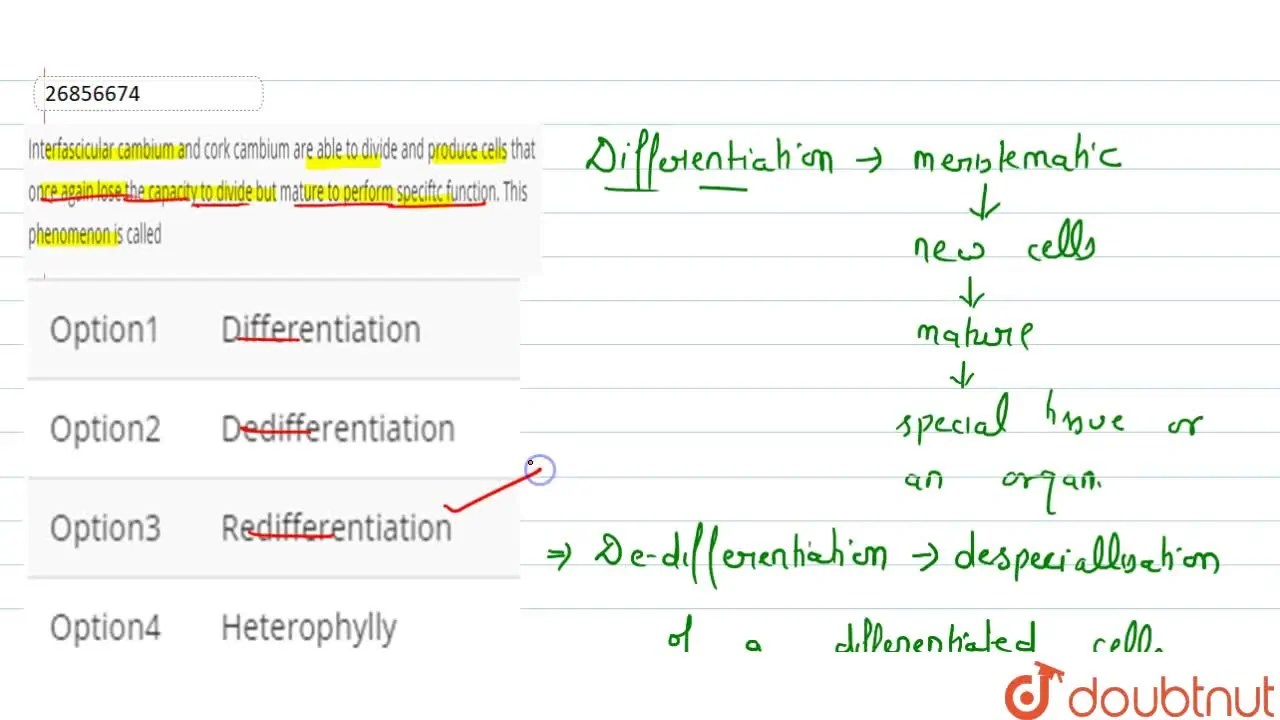 26856674
Interfascicular cambium and cork cambium are able to divide and produce cells that
once again lose the capacity to divide but mature to perform speciftc function. This
phenomenon is called
Option1 Differentiation
Option2 Dedifferentiation
Option3 Redifferentiation
Option4 Heterophylly
Differentiation → meristematic
↓
new cells
↓
mature
↓
special tissue or
an organ.
⇒ De-differentiation → despeciallisation
of a differentiated cell
doubtnut